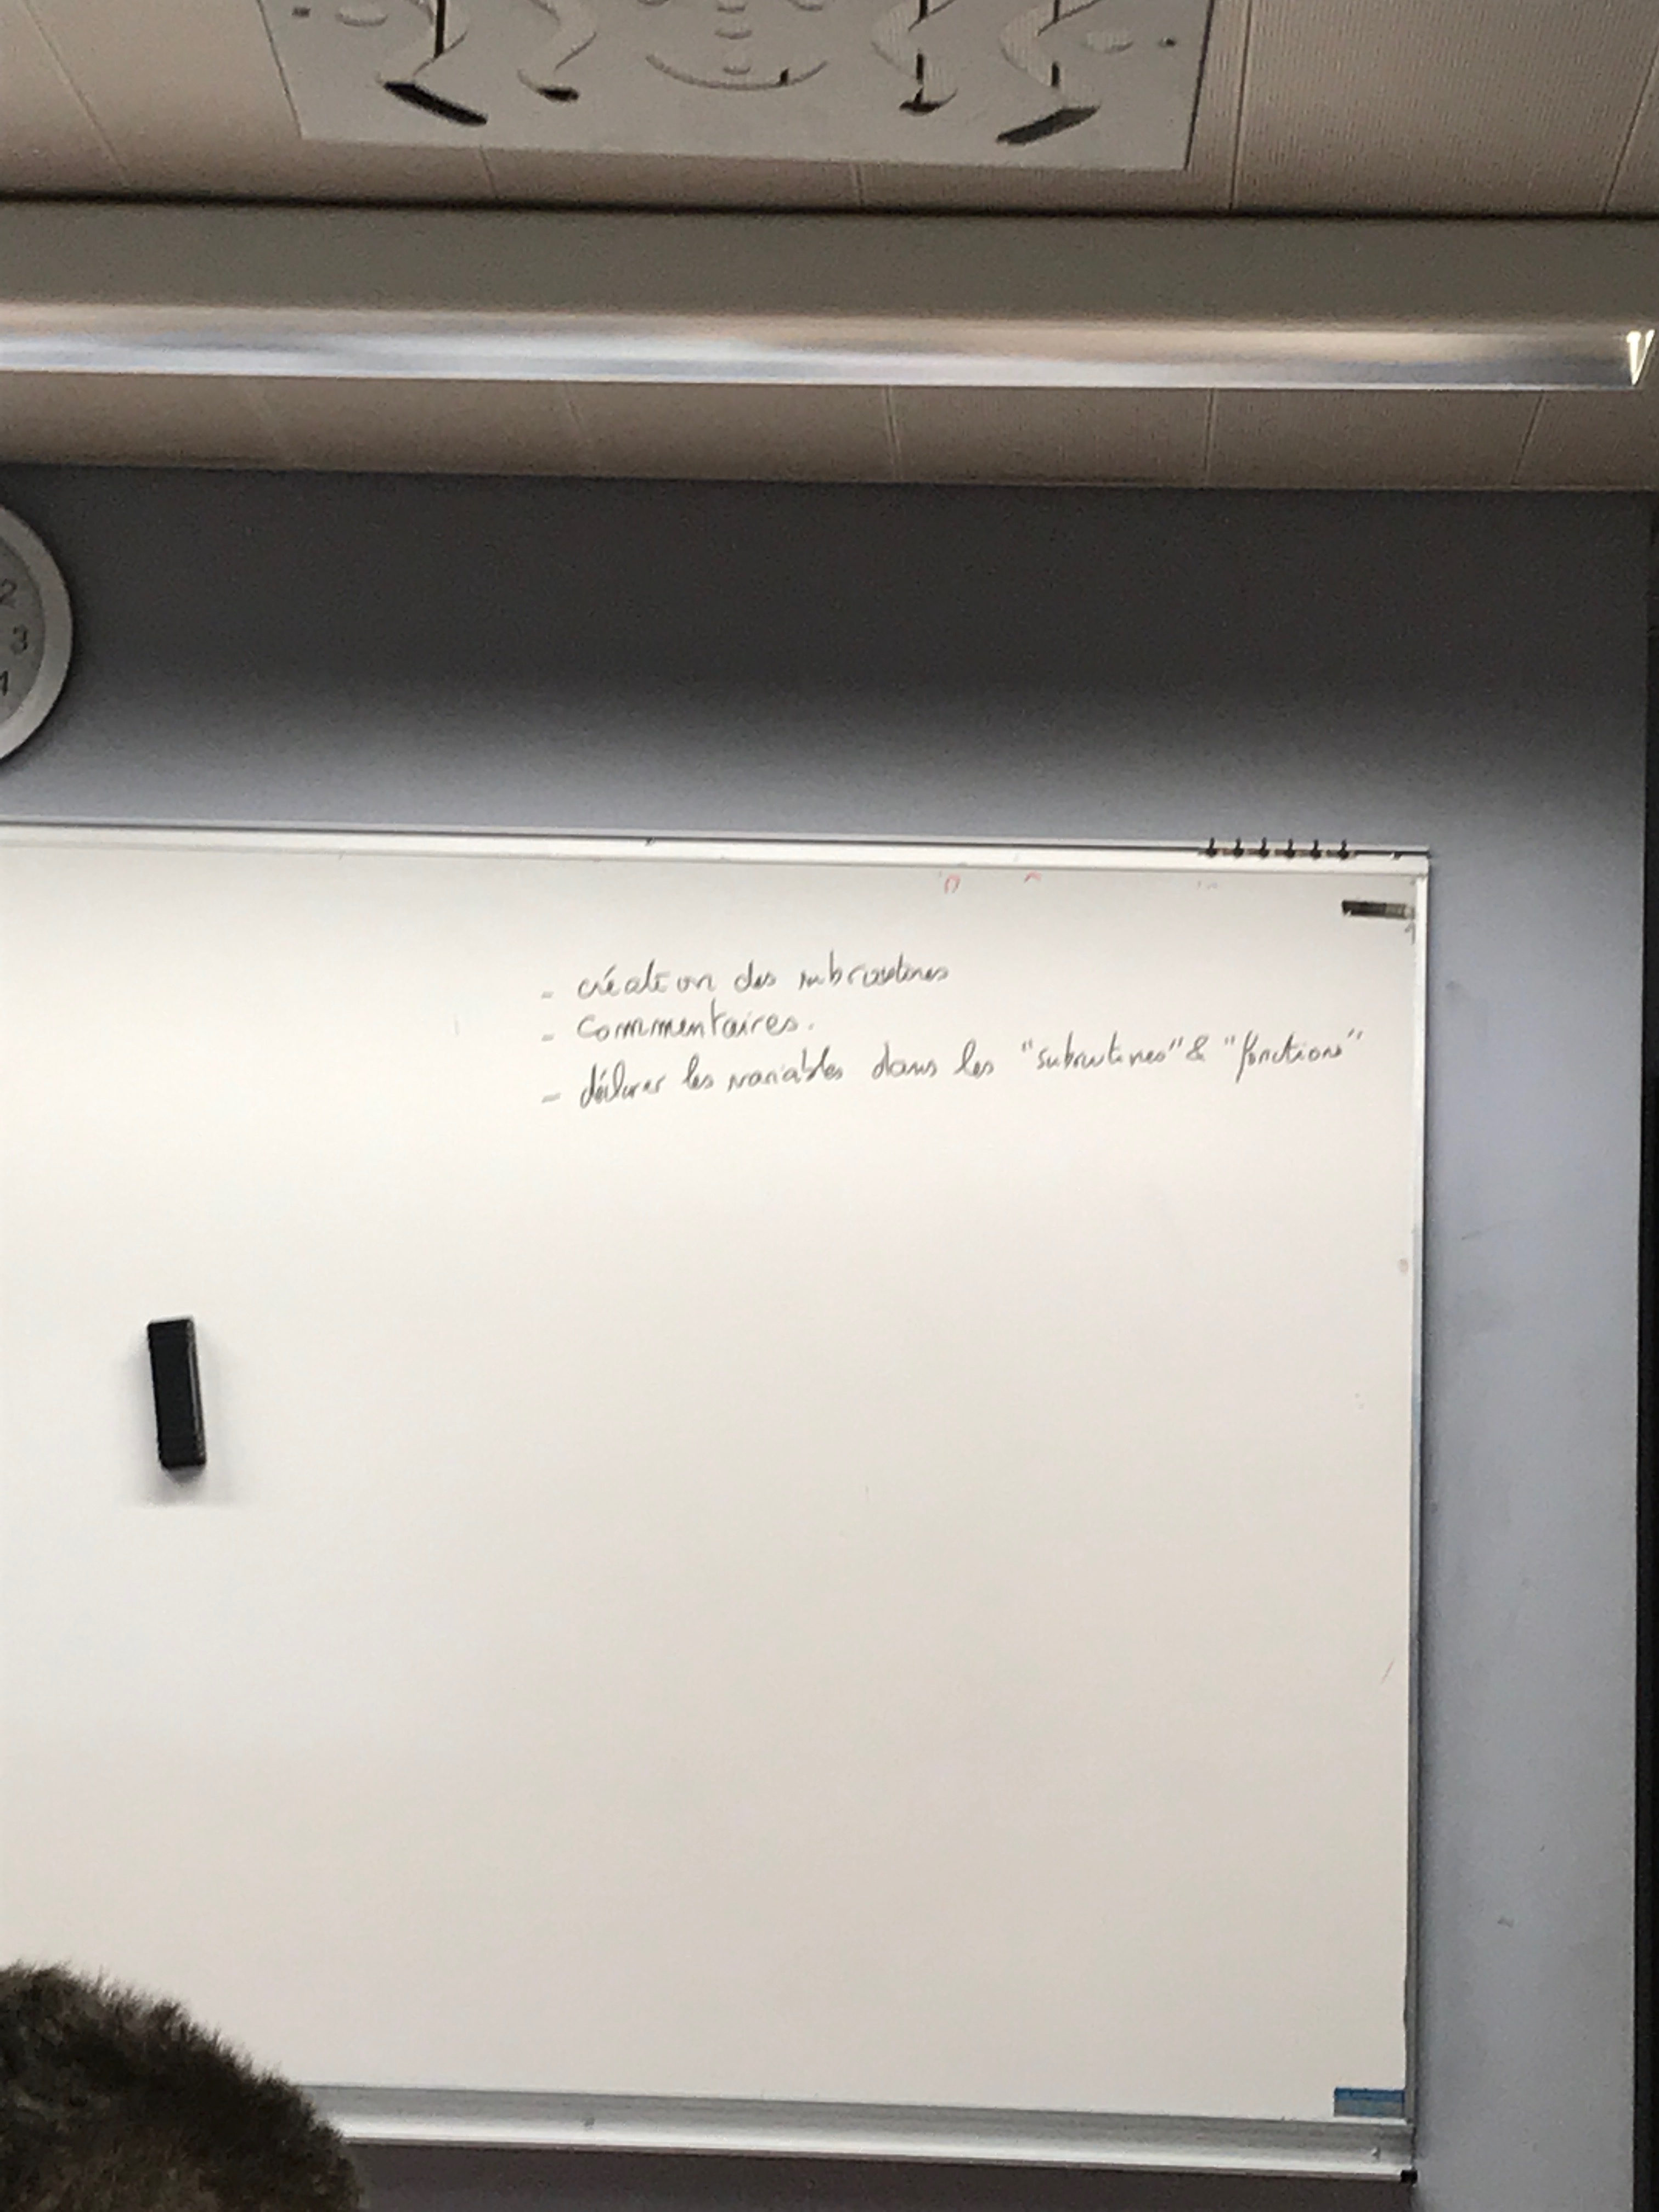 2
3
4
- création des subroutines
- Commentaires.
- déclarer les variables dans les "subroutines" & "fonctions"